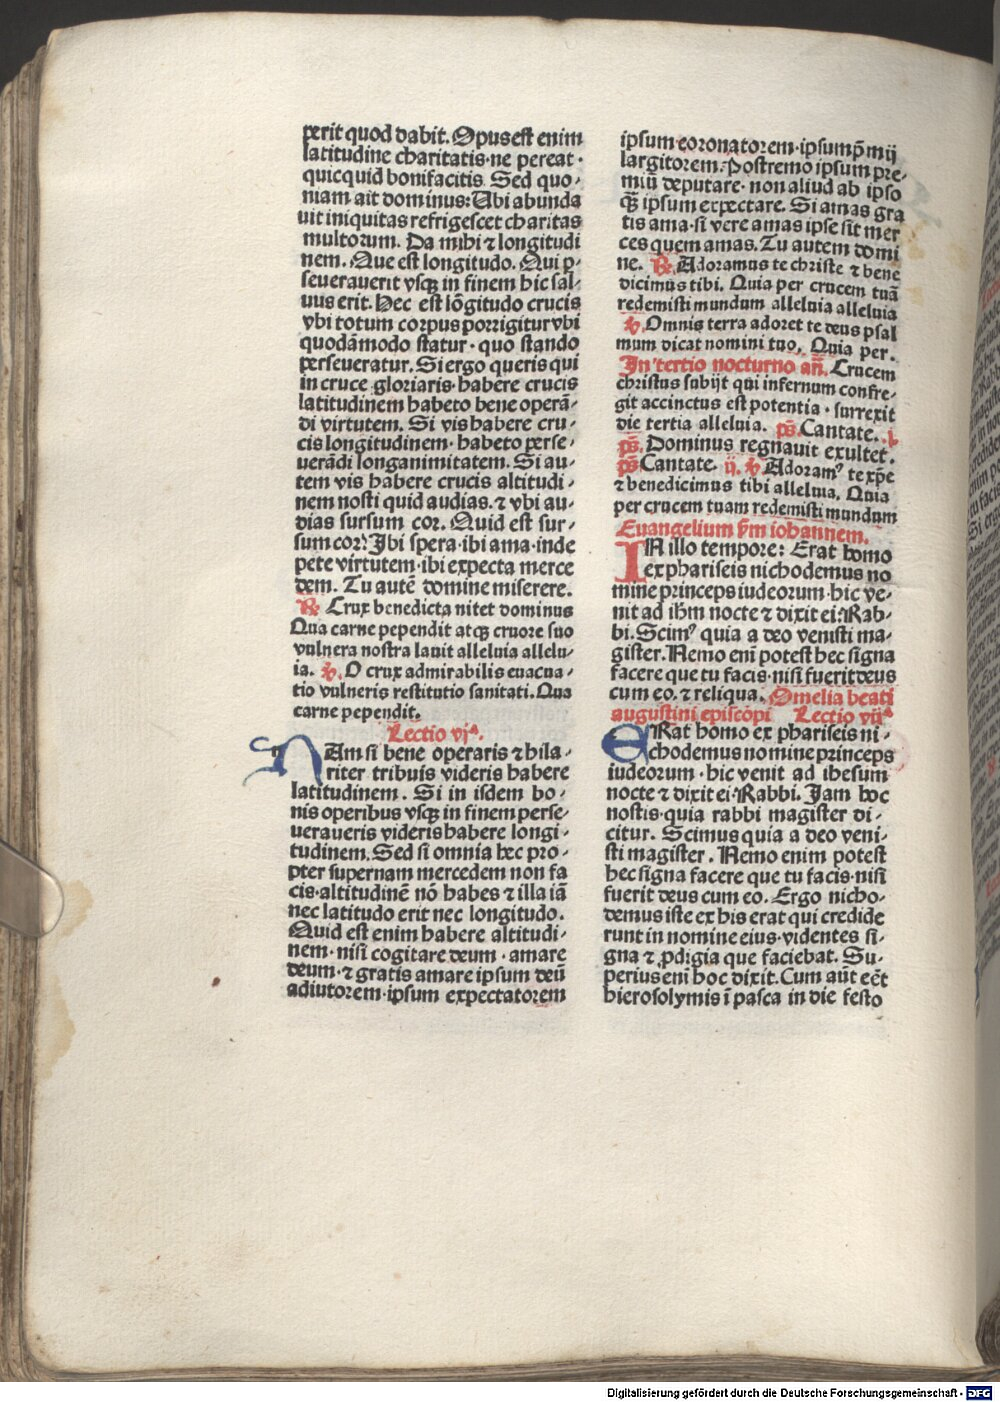 perit quod dabit. Opus est enim
latitudine charitatis·ne pereat·
quicquid bonifacitis Sed quo⸗
niam ait dominus: Ubi abunda
uit iniquitas refrigescet charitas
multorum. Da mihi ⁊ longitudi
nem. Que est longitudo. Qui p̲⸗
seuerauerit vsqꝫ in finem hic sal⸗
uus erit. Hec est lōgitudo crucis
vbi totum corpus porrigitur vbi
quodāmodo statur· quo stando
perseueratur. Si ergo queris qui
in cruce gloriaris· habere crucis
latitudinem habeto bene operā⸗
di virtutem. Si vis habere cru⸗
cis longitudinem· habeto perse⸗
uerādi longanimitatem. Si au⸗
tem vis habere crucis altitudi⸗
nem nosti quid audias. ⁊ vbi au⸗
dias sursum cor. Quid est sur⸗
sum cor? Ibi spera·ibi ama·inde
pete virtutem·ibi expecta merce
dem. Tu autē domine miserere.
℟. Crux benedicta nitet dominus
Qua carne pependit atqꝫ cruore suo
vulnera nostra lauit alleluia allelu⸗
ia. ℣. O crux admirabilis euacua⸗
tio vulneris restitutio sanitati. Qua
carne pependit.
Lectio vjᵃ.
NAm si bene operaris ⁊ hila⸗
riter tribuis videris habere
latitudinem. Si in isdem bo⸗
nis operibus vsqꝫ in finem perse⸗
ueraueris videris habere longi⸗
tudinem. Sed si omnia hec pro⸗
pter supernam mercedem non fa
cis·altitudinē nō habes ⁊ illa iā
nec latitudo erit nec longitudo.
Quid est enim habere altitudi⸗
nem· nisi cogitare deum· amare
deum·⁊ gratis amare ipsum deū
adiutorem·ipsum expectatorem
ipsum coronatorem·ipsump̄mij
largitorem. Postremo ipsum pre⸗
miū deputare· non aliud ab ipso
qꝫ ipsum expectare. Si amas gra
tis ama·si vere amas ipse sit mer
ces quem amas. Tu autem domi
ne. ℟. Adoramus te christe ⁊ bene
dicimus tibi. Quia per crucem tuā
redemisti mundum alleluia alleluia
℣. Omnis terra adoret te deus psal
mum dicat nomini tuo. Quia per.
In tertio nocturno an̄. Crucem
christus subijt qui infernum confre⸗
git accinctus est potentia· surrexit
die tertia alleluia. pš. Cantate. .j.
pš. Dominus regnauit exultet.
pš Cantate. ij. ℣. Adoramꝰ te xp̄e
⁊ benedicimus tibi alleluia. Quia
per crucem tuam redemisti mundum
Euangelium s̄m iohannem.
IN illo tempore: Erat homo
ex phariseis nichodemus no
mine princeps iudeorum·hic ve⸗
nit ad ih̄m nocte ⁊ dixit ei: Rab⸗
bi. Scimꝰ quia a deo venisti ma⸗
gister. Nemo eni potest hec signa
facere que tu facis·nisi fuerit deus
cum eo. ⁊ reliqua. Omelia beati
augustini episcopi Lectio vijᵃ
ERat homo ex phariseis ni⸗
chodemus nomine princeps
iudeorum· hic venit ad ihesum
nocte ⁊ dixit ei·Rabbi. Jam hoc
nostis·quia rabbi magister di⸗
citur. Scimus quia a deo veni⸗
sti magister. Nemo enim potest
hec signa facere que tu facis·nisi
fuerit deus cum eo. Ergo nicho⸗
demus iste ex his erat qui credide
runt in nomine eius·videntes si⸗
gna ⁊ ꝓdigia que faciebat. Su⸗
perius eni hoc dixit. Cum aūt eēt
hierosolymis ī pasca in die festo
Digitalisierung gefördert durch die Deutsche Forschungsgemeinschaft · DFG